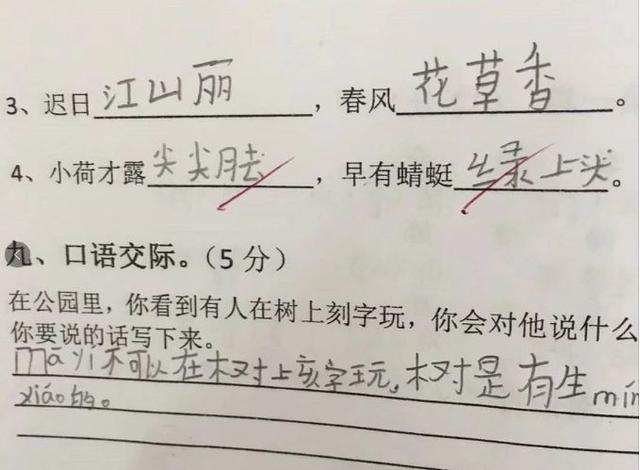 3、迟日江山丽，春风花草香。
4、小荷才露尖尖脚，早有蜻蜓绿上尖。
九、口语交际。（5分）
在公园里，你看到有人在树上刻字玩，你会对他说什么
你要说的话写下来。
mā yǐ不可以在树上刻字玩，树是有生mín
xiáo的。